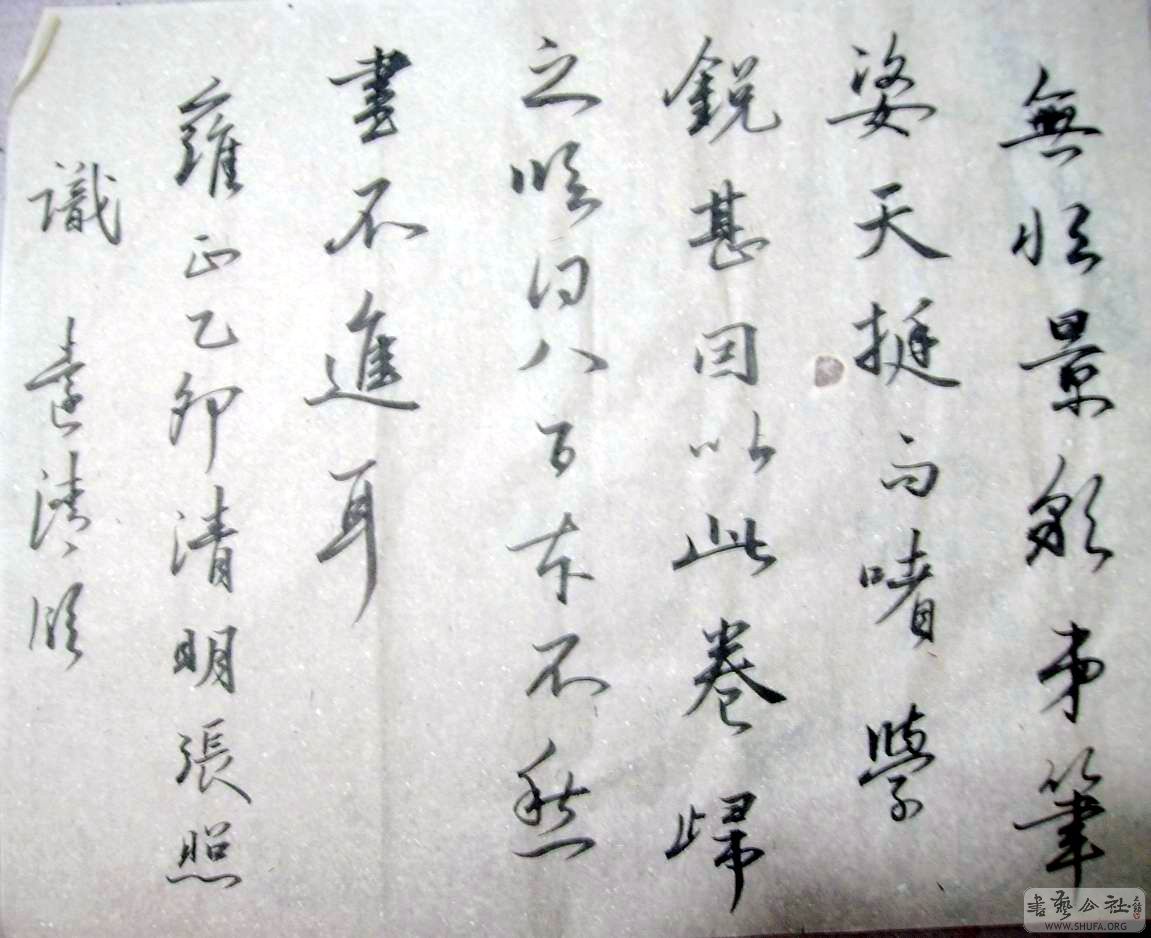 無景弟筆
姿天挺而嗜學
銳甚因以此卷歸
之臨得八百本不愁
書不進耳
雍正乙卯清明張照
識 臨
書藝公社
WWW.SHUFA.ORG